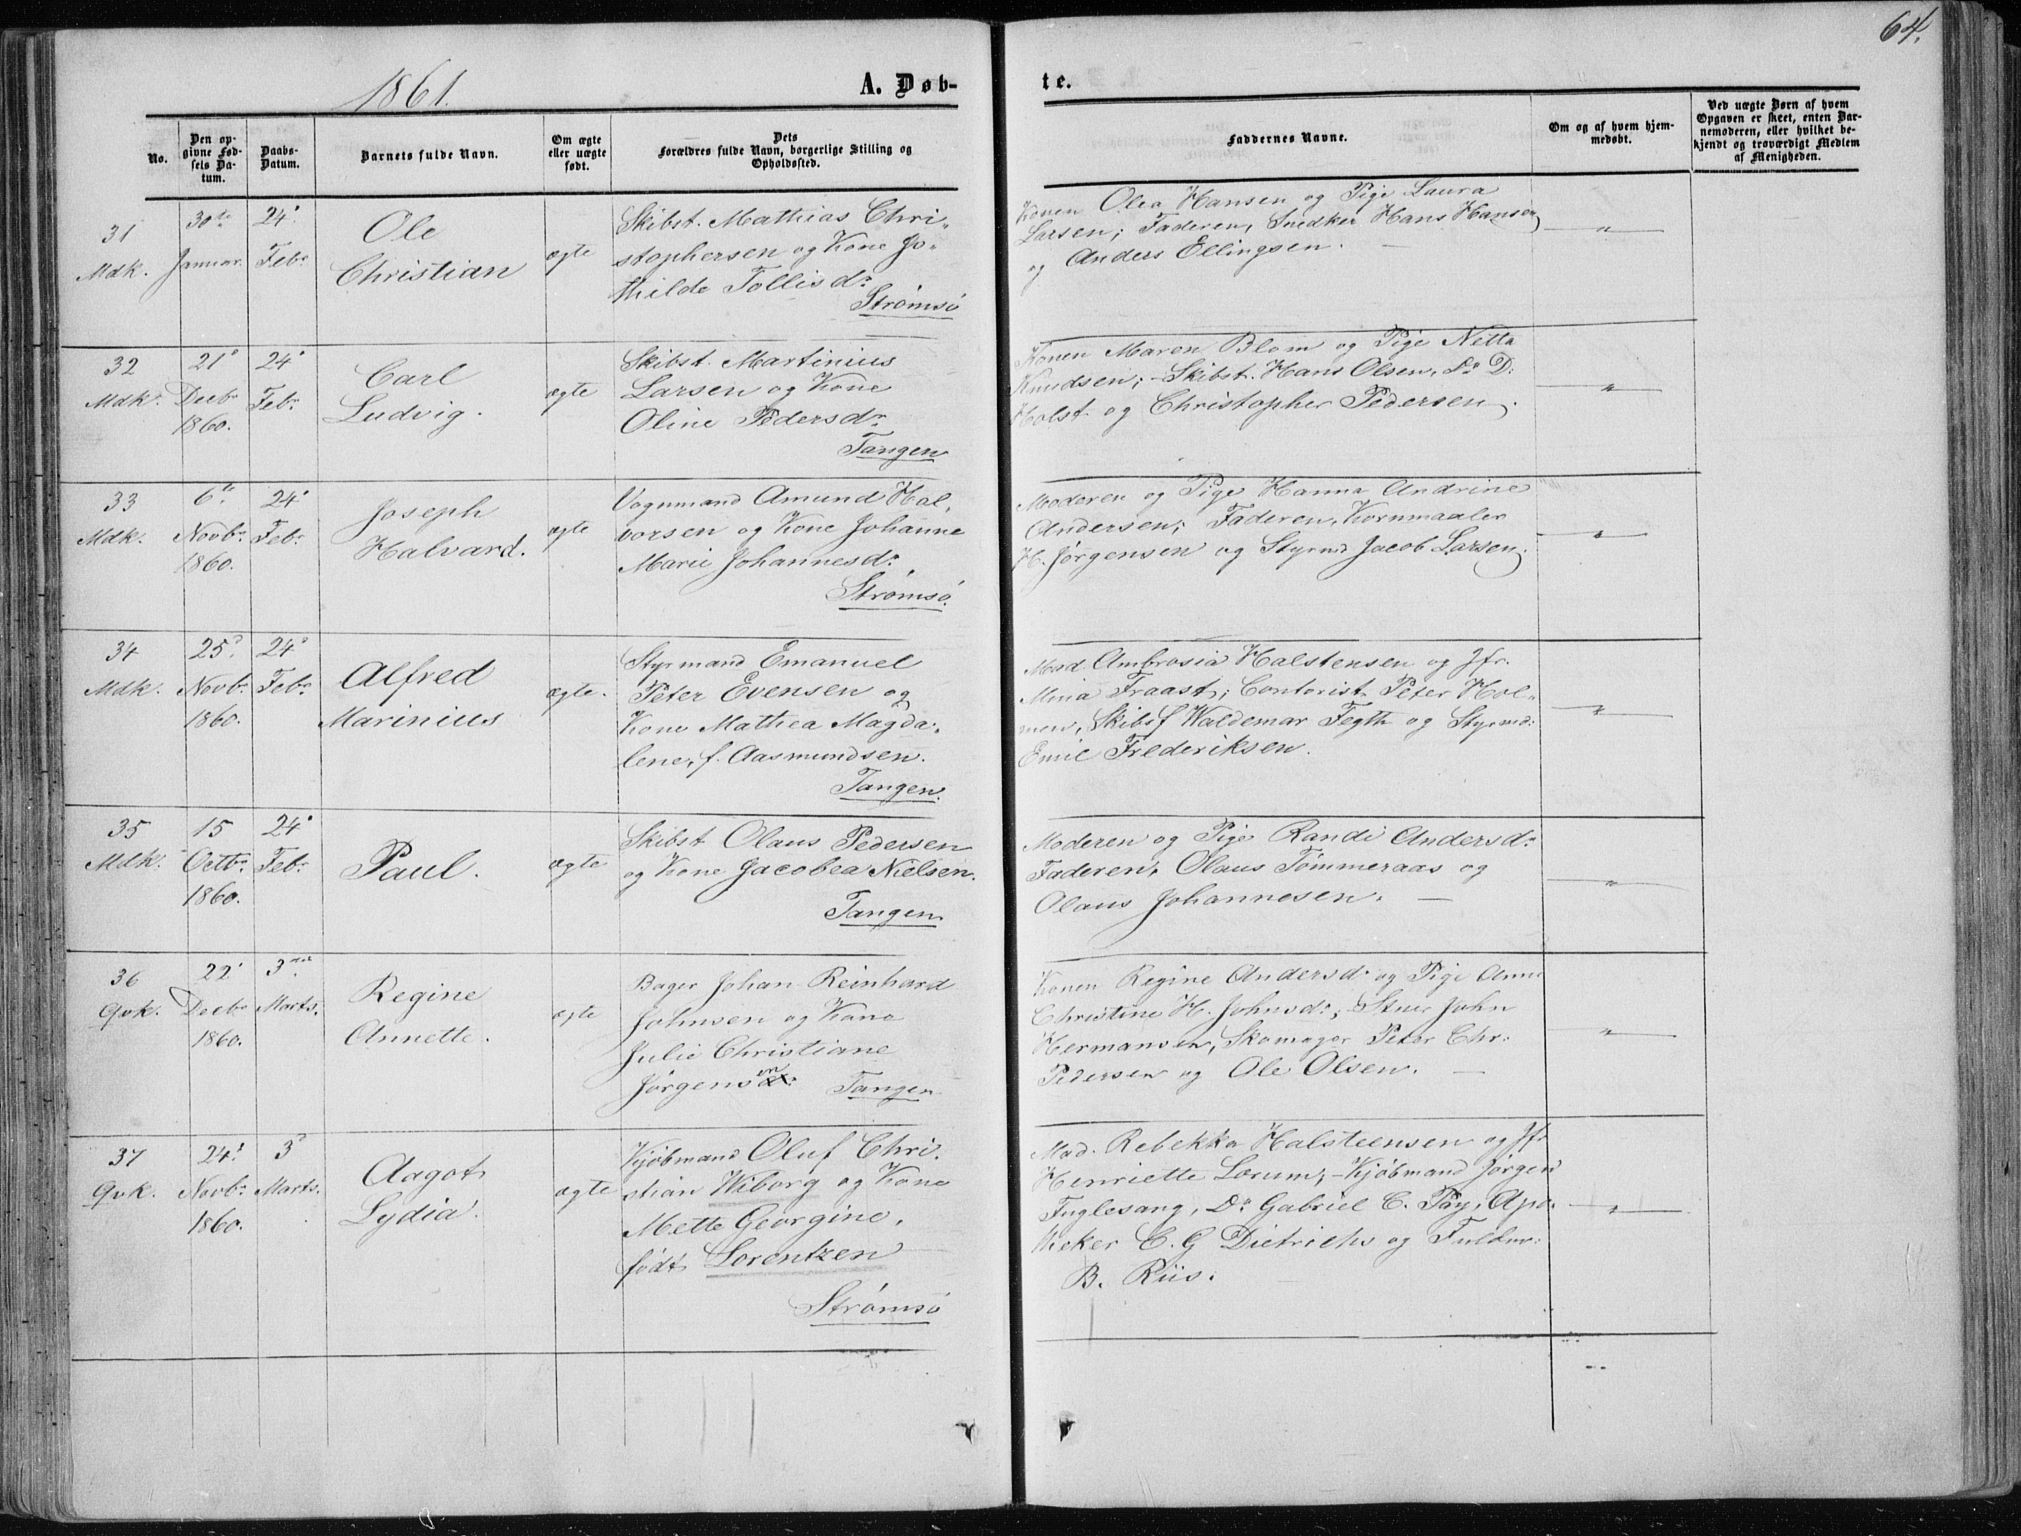 64.
1861.
A. Døb-
te.
No.
Den op-
givne Fød-
sels Da-
tum.
Daabs-
Datum.
Barnets fulde Navn.
Om ægte
eller uægte
født.
Dets
Forældres fulde Navn, borgerlige Stilling og
Opholdssted.
Faddernes Navne.
Om og af hvem hjem-
medøbt.
Ved uægte Børn af hvem
Opgaven er skeet, enten Bar-
nemoderen, eller hvilket be-
kjendt og troværdigt Medlem
af Menigheden.
31
Mdk.
30te
Januar.
24.
Febr
Ole
Christian
ægte
Skibst. Mathias Chri-
stophersen og Kone Jo-
thilde Tollisdr
Strømsö
Konen Olea Hansen og Pige Laura
Larsen; Faderen, Snedker Hans Hansen
og Anders Ellingsen. —
"
32
Mdk.
21
Decbr
1860.
24
Febr
Carl
Ludvig.
ægte
Skibst. Martinius
Larsen og Kone
Oline Pedersdr
Tangen
Konen Maren Blom og Pige Netta
Knudsen; – Skibst. Hans Olsen, Do D:
Holst og Christopher Pedersen.
"
33
Mdk.
6te
Novbr
1860.
24
Febr
Joseph
Halvard.
ægte
Vognmand Amund Hal-
vorsen og Kone Johanne
Marie Johannesdr.
Strømsö.
Moderen og Pige Hanna Andrine
Andersen; Faderen, Kornmaaler
H. Jørgensen og Styrmd Jacob Larsen.
"
34
Mdk.
25
Novbr
1860.
24
Febr
Alfred
Marinius
ægte.
Styrmand Emanuel
Peter Evensen og
Kone Mathea Magda-
lene, f. Aasmundsen.
Tangen.
Mad. Ambrosia Halstensen og Jfr.
Mina Fraast; Contorist Peter Hol-
men, Skibsf Waldemar Fegth og Styrmd:
Emil Frederiksen.
"
35
Mdk.
15
Octbr
1860.
24
Febr
Paul.
ægte
Skibst Olaus Pedersen
og Kone Jacobea Nielsen.
Tangen
Moderen og Pige Randi Andersdr
Faderen, Olaus Tömmeraas og
Olaus Johannesen. —
"
36
Qvk.
22
Decbr
1860.
3die
Marts.
Regine
Annette.
ægte
Bager Johan Reinhard
Johnsen og Kone
Julie Christiane
Jørgensen
Tangen
Konen Regine Andersdr og Pige Anne
Christine H. Johnsdr; – Stuer John
Hermansen, Skomager Peter Chr:
Pedersen og Ole Olsen. —
"
37
Qvk.
24
Novbr
1860.
3
Marts.
Aagot
Lydia.
ægte
Kjøbmand Oluf Chri-
stian Wiborg og Kone
Mette Georgine,
født Lorentzen
Strømsö
Mad. Rebekka Halsteensen og Jfr
Henriette Lorum; – Kjøbmand Jørgen
Fuglesang, Do Gabriel C. Pay, Apo-
theker C. G Dietrichs og Fuldm:
B. Riis.
"